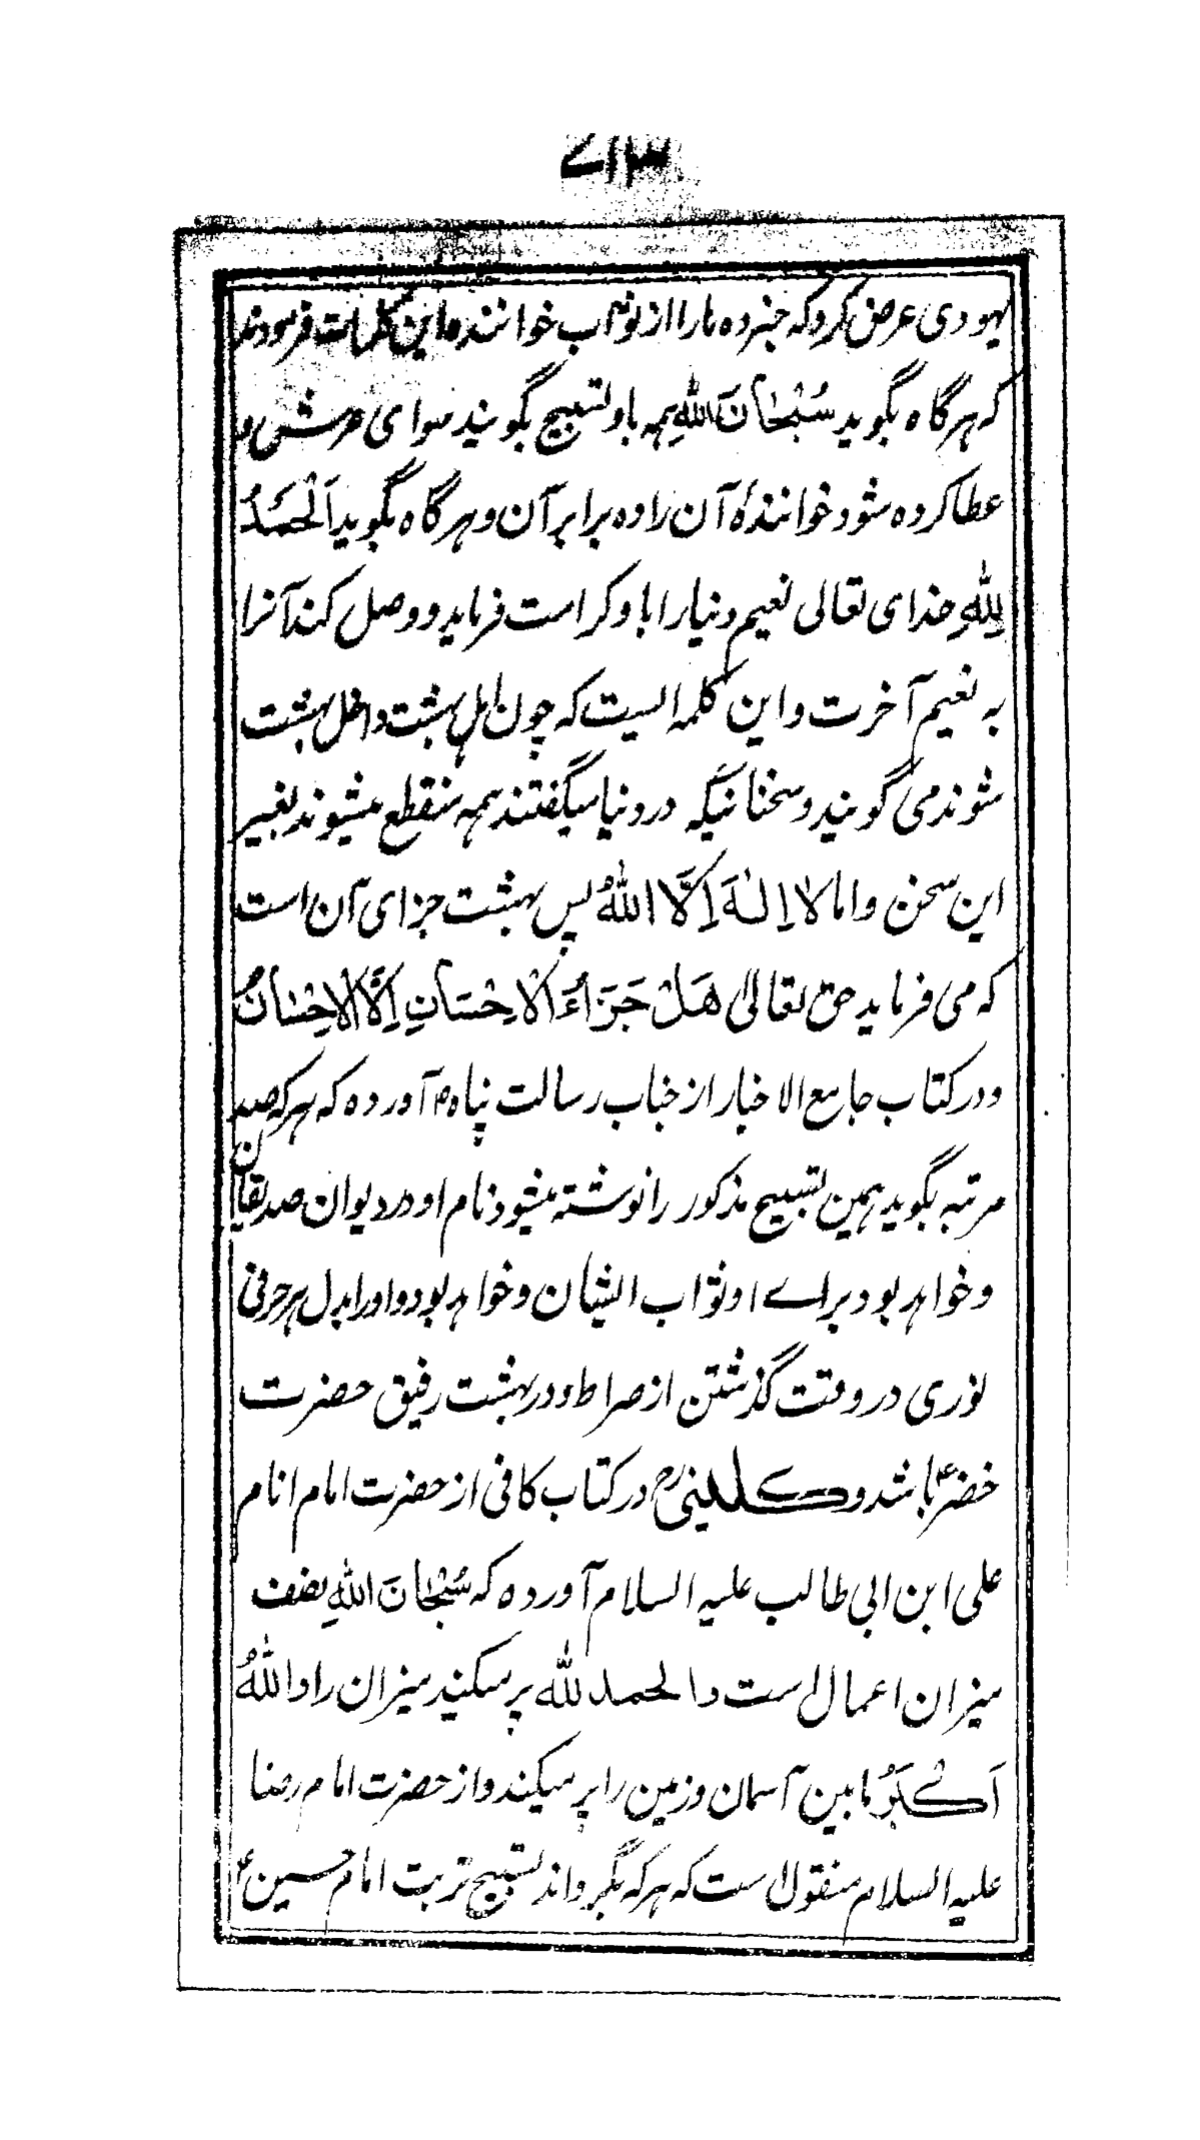 ۷۱۳
یهودی عرض کرد که خبر ده ما را از ثواب خواننده این کلمات فرمودند
که هرگاه بگوید سُبْحَانَ اللهِ همه با او تسبیح گویند سوای عرش و
عطا کرده شود خوانندۀ آن را ده برابر آن و هرگاه بگوید اَلْحَمْدُ
لِلّٰهِ خدای تعالی نعیم دنیا را با و کرامت فرماید و وصل کند آنرا
به نعیم آخرت و این کلمه ایست که چون اهل بهشت داخل بهشت
شوند می گویند و سخنانیکه در دنیا میگفتند همه منقطع میشوند بغیر
این سخن و اما لا اِلٰهَ اِلَّا اللهُ پس بهشت جزای آن است
که می فرماید حق تعالیٰ هَلْ جَزَاءُ الْاِحْسَانِ اِلَّا الْاِحْسَانُ
و در کتاب جامع الاخبار از جناب رسالت پناه ۴ آورده که هر که صد
مرتبه بگوید همین تسبیح مذکور را نوشته میشود نام او در دیوان صدیقان
و خواهد بود براے او ثواب ایشان و خواهد بود و او را بدل هر حرفی
نوری در وقت گذشتن از صراط و در بهشت رفیق حضرت
خضرؑ باشد و کلینیؒ در کتاب کافی از حضرت امام انام
علی ابن ابی طالب علیه السلام آورده که سُبْحَانَ اللهِ نصف
میزان اعمال است و الحمد لله پر میکند میزان را و اللهُ
اَکْبَرُ ما بین آسمان و زمین را پر میکند و از حضرت امام رضا
علیه السلام منقول است که هر که بگرداند تسبیح تربت امام حسینؑ